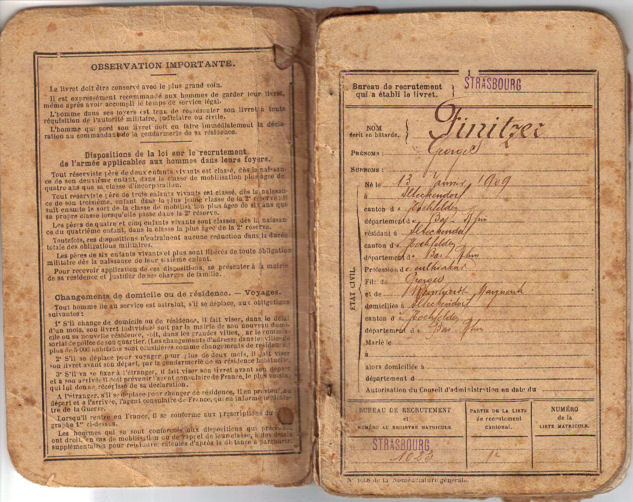 OBSERVATION IMPORTANTE.
Le livret doit être conservé avec le plus grand soin.
Il est expressément recommandé aux hommes de garder leur livret,
même après avoir accompli le temps de service légal.
L'homme dans ses foyers est tenu de présenter son livret à toute
réquisition de l'autorité militaire, judiciaire ou civile.
L'homme qui perd son livret doit en faire immédiatement la décla-
ration au commandant de la gendarmerie de sa résidence.
Dispositions de la loi sur le recrutement
de l'armée applicables aux hommes dans leurs foyers.
Tout réserviste père de deux enfants vivants est classé, dès la naissan-
ce de son deuxième enfant, dans la classe de mobilisation plus âgée de
quatre ans que sa classe d'incorporation.
Tout réserviste père de trois enfants vivants est classé, dès la naissan-
ce de son troisième enfant, dans la plus jeune classe de la 2e réserve et
suit ensuite le sort de la classe de mobilisation plus âgée de six ans que
sa propre classe lorsqu'elle passe dans la 2e réserve.
Les pères de quatre et cinq enfants vivants sont classés, dès la naissan-
ce du quatrième enfant, dans la classe la plus âgée de la 2e réserve.
Toutefois, ces dispositions n'entraînent aucune réduction dans la durée
totale des obligations militaires.
Les pères de six enfants vivants et plus sont libérés de toute obligation
militaire dès la naissance de leur sixième enfant.
Pour recevoir application de ces dispositions, se présenter à la mairie
de sa résidence et justifier de ses charges de famille.
Changements de domicile ou de résidence. — Voyages.
Tout homme lié au service est astreint, s'il se déplace, aux obligations
suivantes :
1° S'il change de domicile ou de résidence, il fait viser, dans le délai
d'un mois, son livret individuel soit par la mairie de son nouveau domi-
cile ou sa nouvelle résidence, soit, dans les grandes villes, par le commis-
sariat de police de son quartier. (Les changements d'adresse dans les villes de
plus de 5 000 habitants sont considérés comme changements de résidence).
2° S'il se déplace pour voyager pour plus de deux mois, il fait viser
son livret avant son départ, par la gendarmerie de sa résidence habituelle.
3° S'il va se fixer à l'étranger, il fait viser son livret avant son départ
et à son arrivée il doit prévenir l'agent consulaire de France, le plus voisin,
qui lui donne récépissé de sa déclaration.
A l'étranger, s'il se déplace pour changer de résidence, il en prévient au
départ et à l'arrivée, l'agent consulaire de France, qui en informe le minis-
tre de la Guerre.
Lorsqu'il rentre en France, il se conforme aux prescriptions du
graphe 1er ci-dessus.
Les hommes qui se sont conformés aux dispositions qui précèdent
ont droit, en cas de mobilisation ou de rappel de leur classe, à des délais
supplémentaires pour rejoindre, calculés d'après la distance à parcourir.
Bureau de recrutement
qui a établi le livret.
STRASBOURG
NOM
écrit en bâtarde.
Finitzer
PRÉNOMS :
Georges
SURNOMS :
ÉTAT CIVIL
Né le 13 janvier 1909
à
canton d Hochfelden
département d Bas Rhin
résidant à
canton d Hochfelden
département d Bas Rhin
Profession d cultivateur
Fils de Georges
et de
domiciliés à
canton d Hochfelden
département d Bas Rhin
Marié le
à
alors domiciliée à
département d
Autorisation du Conseil d'administration en date du
BUREAU DE RECRUTEMENT
et
NUMÉRO AU REGISTRE MATRICULE.
PARTIE DE LA LISTE
de recrutement
cantonal.
NUMÉRO
de la
LISTE MATRICULE.
STRASBOURG
1023
1re
N° 1018 de la Nomenclature générale.